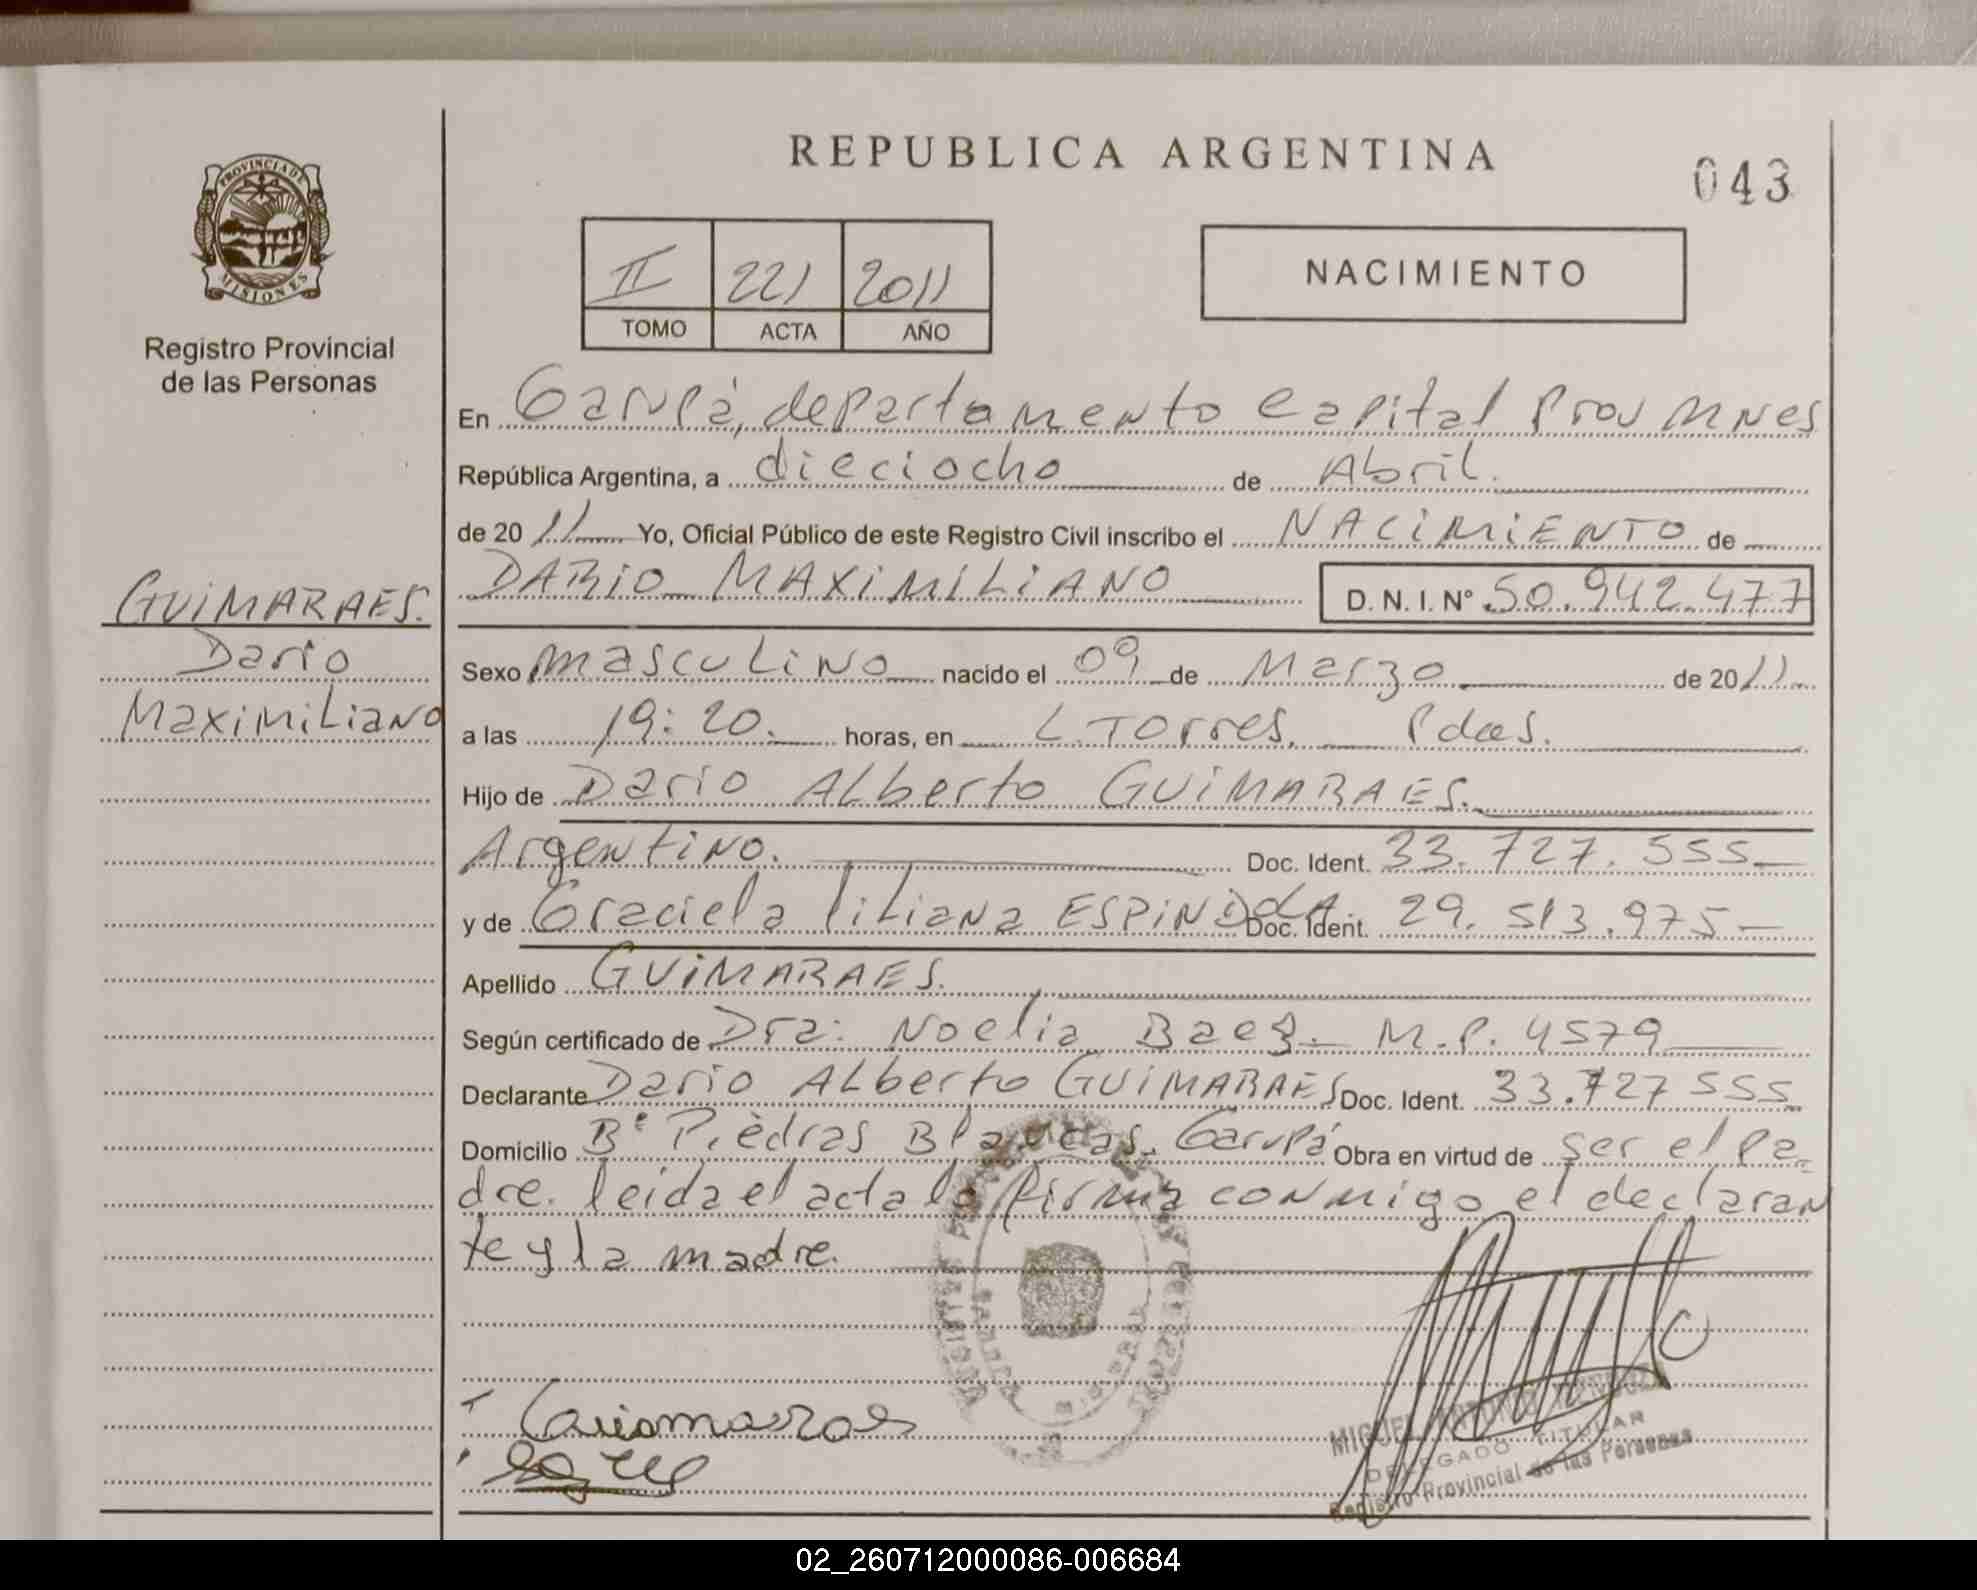 REPUBLICA ARGENTINA
043
PROVINCIA DE
MISIONES
Registro Provincial
de las Personas
II 221 2011
TOMO ACTA AÑO
NACIMIENTO
En Garupá, departamento Capital Prov Mnes
República Argentina, a dieciocho de Abril.
de 2011 Yo, Oficial Público de este Registro Civil inscribo el NACIMIENTO de
DARIO MAXIMILIANO D. N. I. N° 50.942.477
GUIMARAES.
Dario
Maximiliano
Sexo masculino nacido el 09 de Marzo de 2011
a las 19:20. horas, en L. Torres. Pdas.
Hijo de Dario Alberto GUIMARAES.
Argentino. Doc. Ident. 33.727.555
y de Graciela liliana ESPINDOLA Doc. Ident. 29.513.975
Apellido GUIMARAES.
Según certificado de Dra: Noelia Baez. M.P. 4579
Declarante Dario Alberto GUIMARAES Doc. Ident. 33.727 555
Domicilio B° Piedras Blancas. Garupá Obra en virtud de ser el Pa-
dre. leida el acta la firma conmigo el declaran
te y la madre.
MIGUEL
DELEGADO TITULAR
Registro Provincial de las Personas
02_260712000086-006684